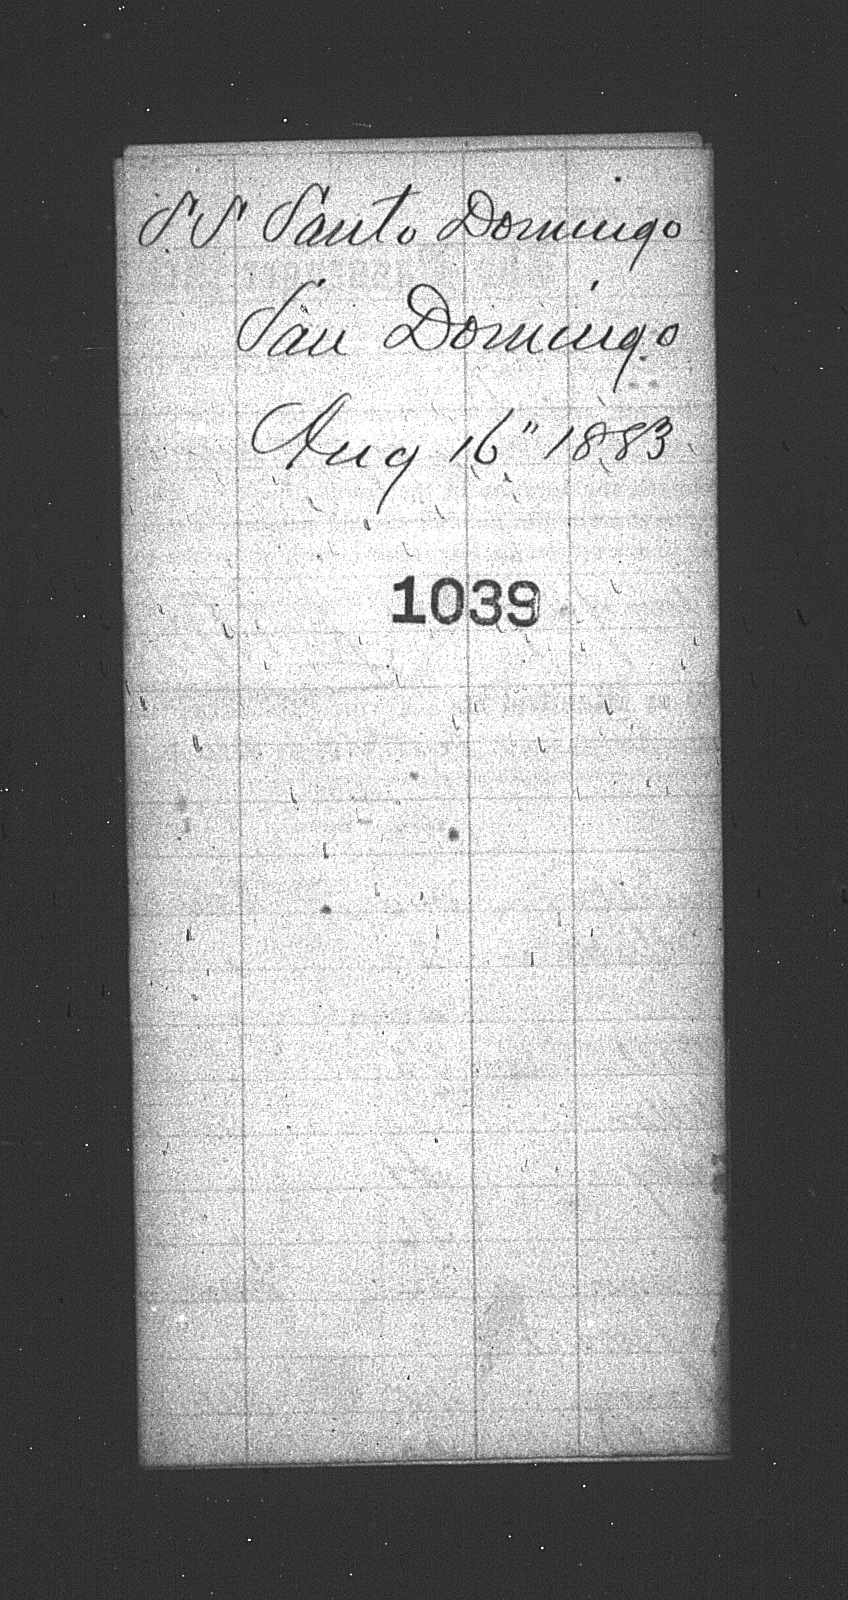 S.S. Santo Domingo
San Domingo
Aug 16" 1883
1039